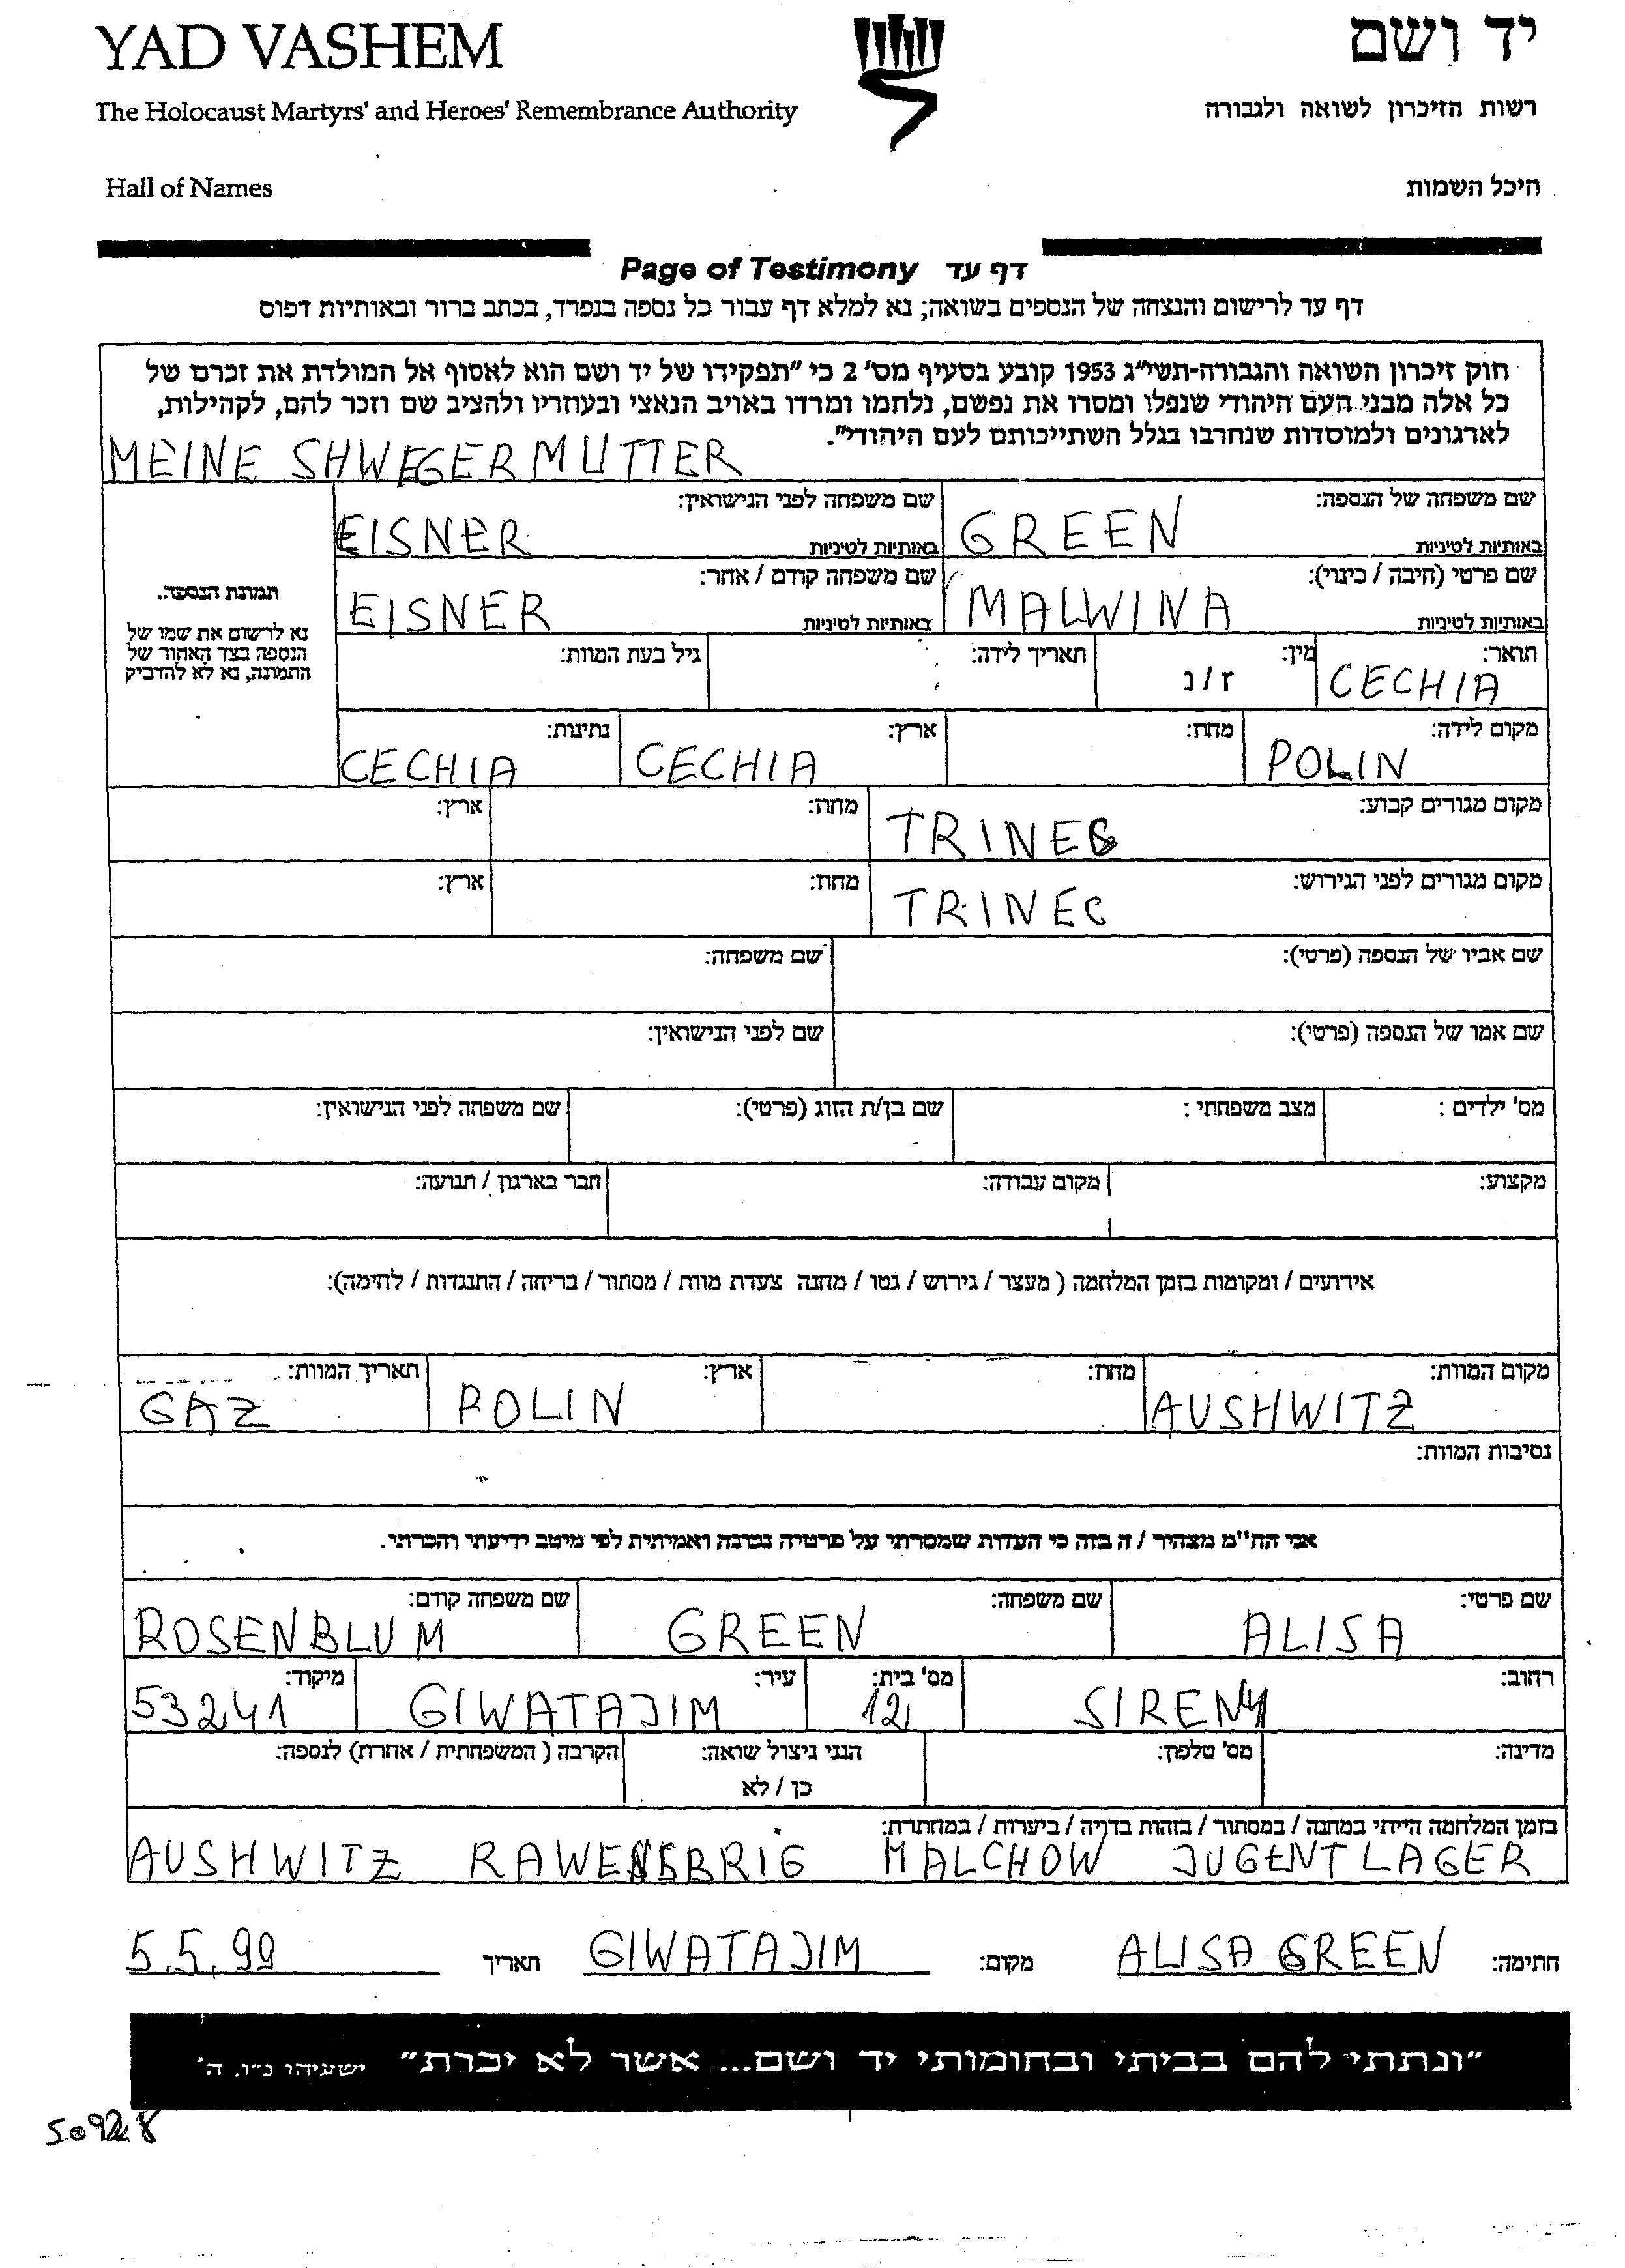 YAD VASHEM
יד ושם
The Holocaust Martyrs' and Heroes' Remembrance Authority
רשות הזיכרון לשואה ולגבורה
Hall of Names
היכל השמות
Page of Testimony דף עד
דף עד לרישום והנצחה של הנספים בשואה; נא למלא דף עבור כל נספה בנפרד, בכתב ברור ובאותיות דפוס
חוק זיכרון השואה והגבורה-תשי"ג 1953 קובע בסעיף מס' 2 כי "תפקידו של יד ושם הוא לאסוף אל המולדת את זכרם של
כל אלה מבני העם היהודי שנפלו ומסרו את נפשם, נלחמו ומרדו באויב הנאצי ובעוזריו ולהציב שם וזכר להם, לקהילות,
לארגונים ולמוסדות שנחרבו בגלל השתייכותם לעם היהודי".
MEINE SHWEGERMUTTER
שם משפחה של הנספה: GREEN באותיות לטיניות
שם משפחה לפני הנישואין: EISNER באותיות לטיניות
שם פרטי (חיבה / כינוי): MALWINA באותיות לטיניות
שם משפחה קודם / אחר: EISNER באותיות לטיניות
תמונת הנספה.
נא לרשום את שמו של
הנספה בצד האחור של
התמונה, נא לא להדביק
תואר: CECHIA
מין: ז / נ
תאריך לידה:
גיל בעת המוות:
מקום לידה: POLIN
מחוז:
ארץ: CECHIA
נתינות: CECHIA
מקום מגורים קבוע: TRINEC
מחוז:
ארץ:
מקום מגורים לפני הגירוש: TRINEC
מחוז:
ארץ:
שם אביו של הנספה (פרטי):
שם משפחה:
שם אמו של הנספה (פרטי):
שם לפני הנישואין:
מס' ילדים :
מצב משפחתי :
שם בן/ת הזוג (פרטי):
שם משפחה לפני הנישואין:
מקצוע:
מקום עבודה:
חבר בארגון / תנועה:
אירועים / ומקומות בזמן המלחמה ( מעצר / גירוש / גטו / מחנה צעדת מוות / מסתור / בריחה / התנגדות / לחימה):
מקום המוות: AUSHWITZ
מחוז:
ארץ: POLIN
תאריך המוות: GAZ
נסיבות המוות:
אני הח"מ מצהיר / ה בזה כי העדות שמסרתי על פרטיה נכונה ואמיתית לפי מיטב ידיעתי והכרתי.
שם פרטי: ALISA
שם משפחה: GREEN
שם משפחה קודם: ROSENBLUM
רחוב: SIRENY
מס' בית: 12
עיר: GIWATAJIM
מיקוד: 53241
מדינה:
מס' טלפון:
הנני ניצול שואה: כן / לא
הקרבה ( המשפחתית / אחרת) לנספה:
בזמן המלחמה הייתי במחנה / במסתור / בזהות בדויה / ביערות / במחתרת:
AUSHWITZ RAWENSBRIG MALCHOW JUGENTLAGER
חתימה: ALISA GREEN מקום: GIWATAJIM תאריך 5.5.99
"ונתתי להם בביתי ובחומותי יד ושם... אשר לא יכרת" ישעיהו נ"ו, ה'